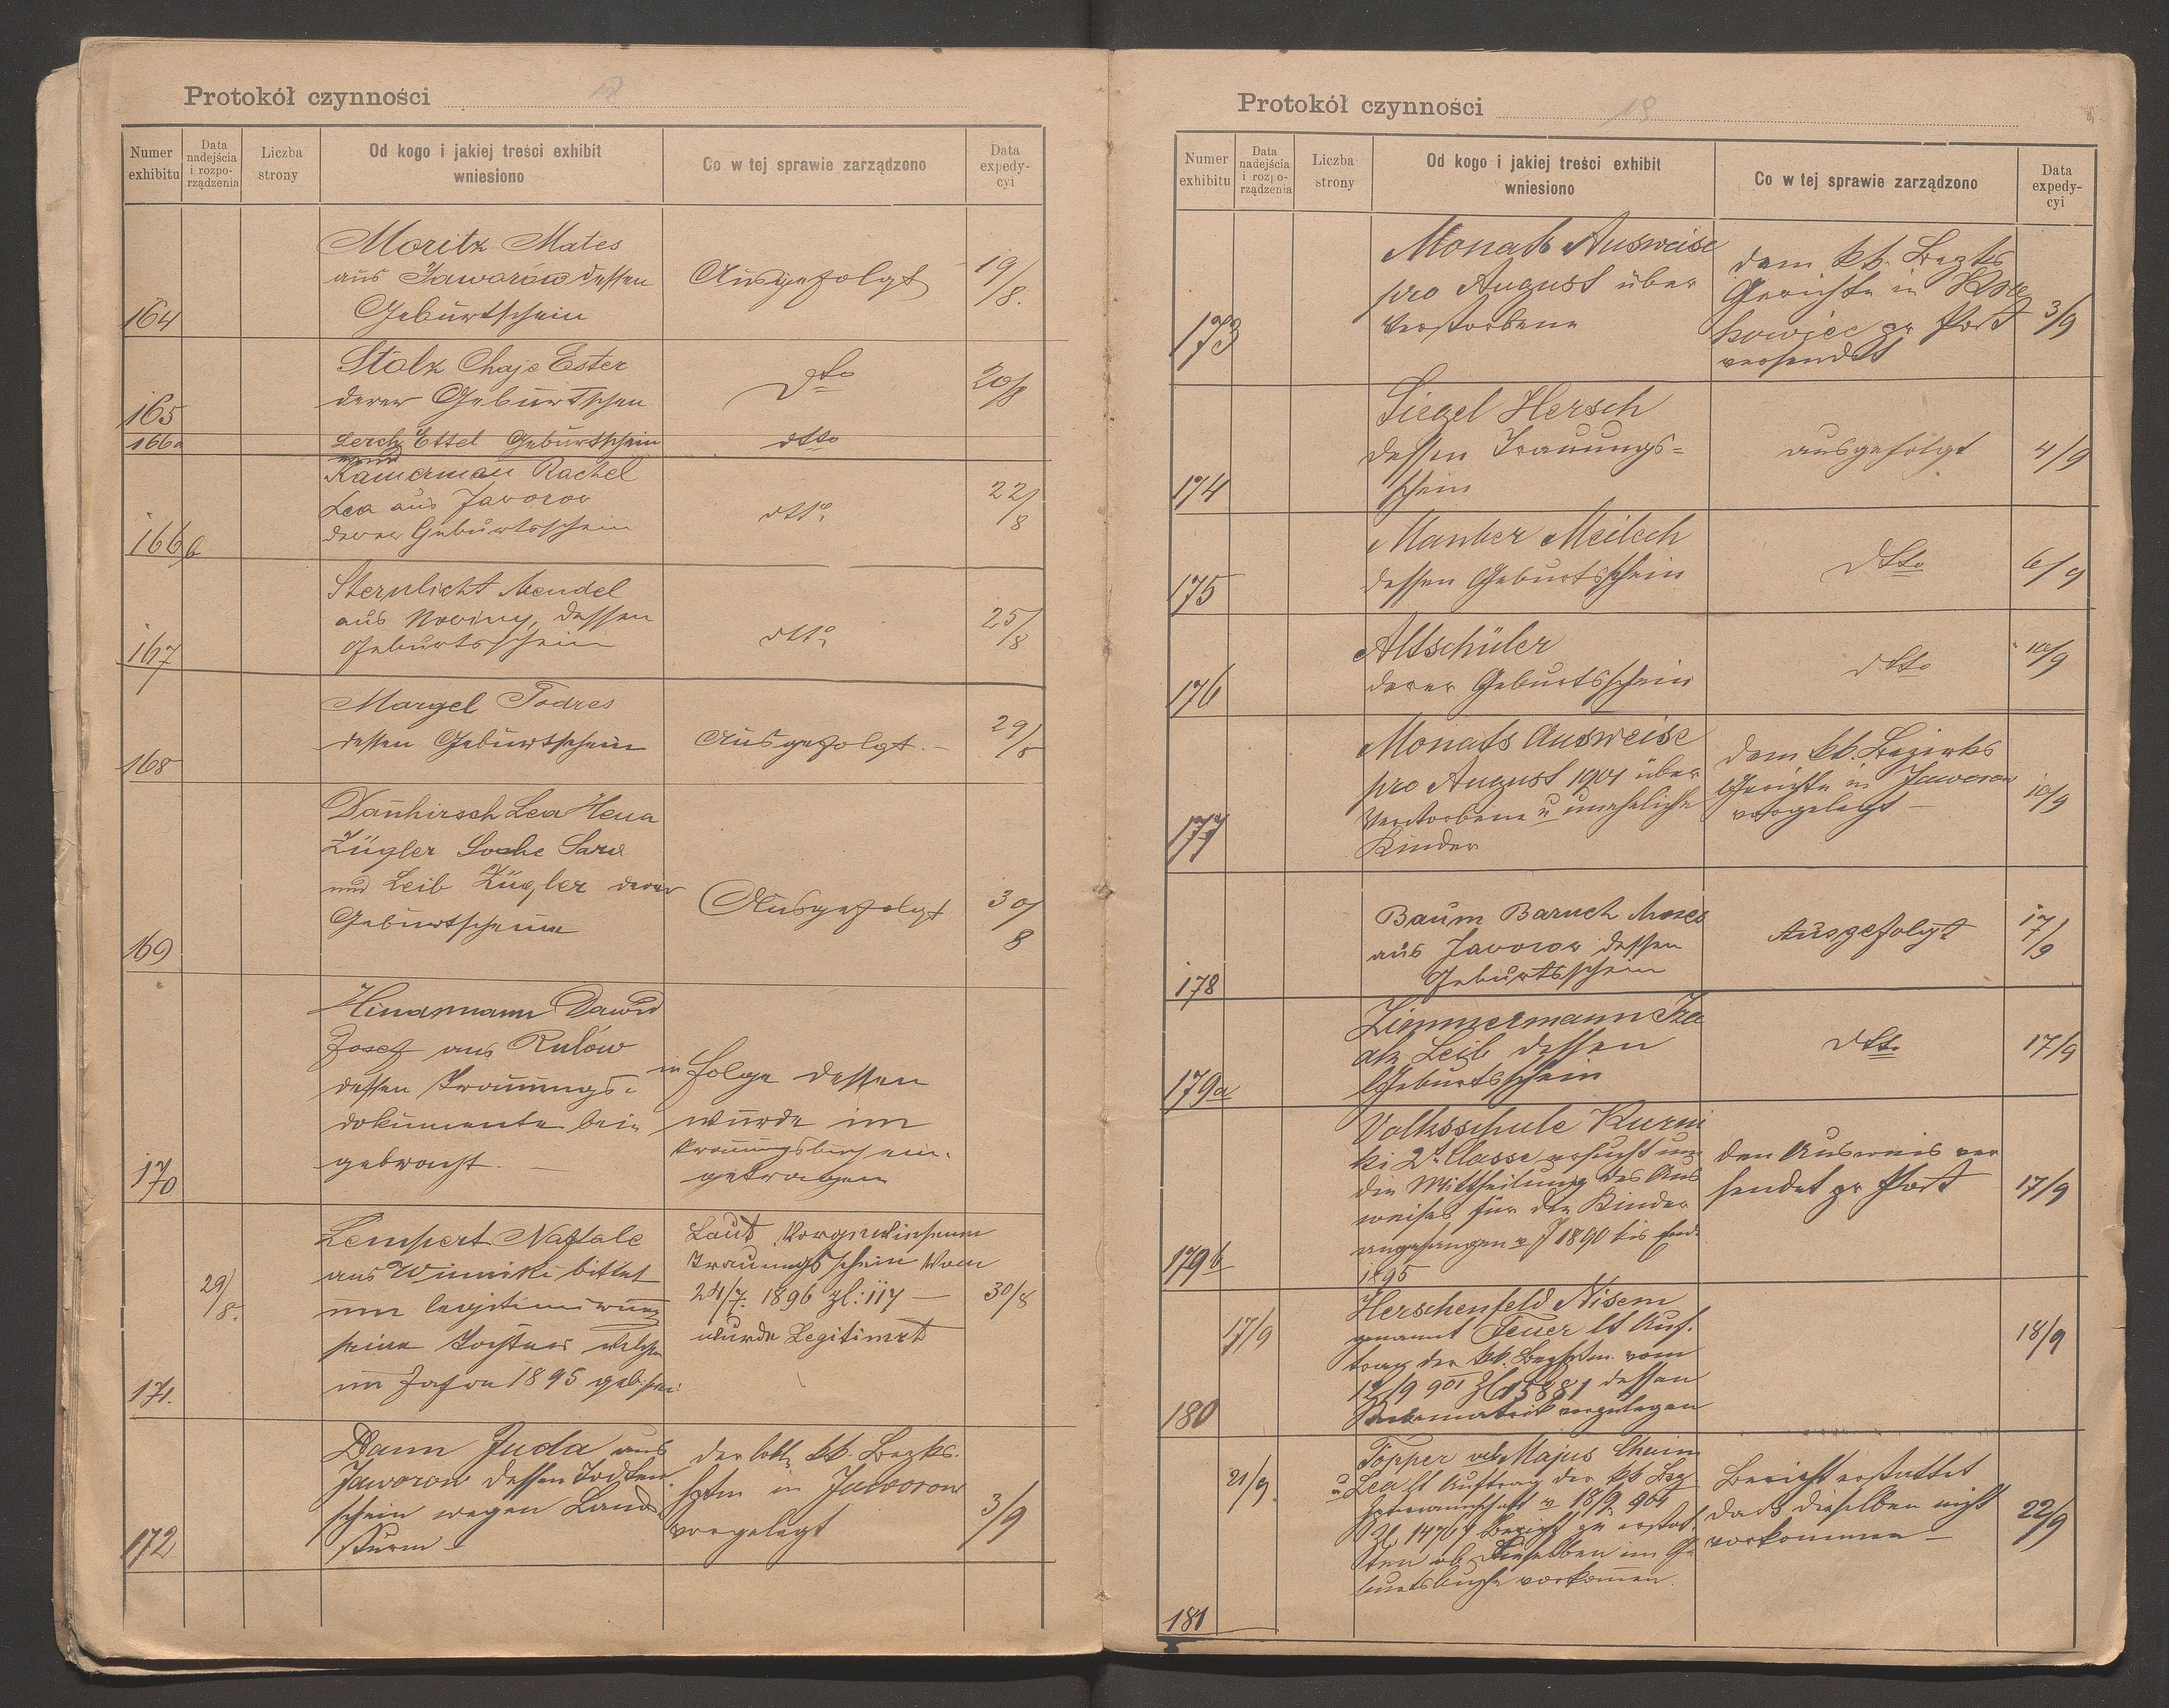 Protokół czynności 18
Numer exhibitu
Data nadejścia i rozpo-rządzenia
Liczba strony
Od kogo i jakiej treści exhibit wniesiono
Co w tej sprawie zarządzono
Data expedy-cyi
164
Moritz Mates
aus Jaworów dessen
Geburtschein
Ausgefolgt
19/8.
165
Stolz Chaje Ester
deren Geburtschein
dto
20/8
166a
Lerch Ettel Geburtschein
dtto
166b
Kamerman Rachel
Lea aus Javorov
deren Geburtsschein
dtto
22/8
167
Sternlicht Mendel
aus Noviny, dessen
Geburtsschein
dtto
25/8
168
Margel Todres
dessen Geburtschein
Ausgefolgt.-
29/8
169
Danhirsch Lea Hena
Zügler Soche Sara
und Leib Zügler deren
Geburtscheine
Ausgefolgt
30/8
170
Josef aus Rulow
dessen Trauungs-
dokumente bei-
gebracht. –
in folge dessen
wurde im
Trauungsbuch ein-
getragen
171.
29/8.
Lempert Naftale
aus Winniki bittet
um legitimirung
seine Tochter welche
im Jahre 1895 geb.
Laut
Trauungsschein vom
24/7. 1896 zl: 117 —
wurde Legitimrt
30/8
172
Dann Juda aus
Jaworow dessen Todten
schein wegen Land
sturm –
der löbl. kk. Bezks.
hptm in Jaworow
vorgelegt
3/9
Protokół czynności 19
Numer exhibitu
Data nadejścia i rozpo-rządzenia
Liczba strony
Od kogo i jakiej treści exhibit wniesiono
Co w tej sprawie zarządzono
Data expedy-cyi
173
Monats Ausweise
pro August über
Verstorbene
dem kk. Bezks
Gerichte in Kra
kowiec pr Post
versendet
3/9
174
Siegel Hersch
dessen Trauungs=
schein
ausgefolgt
4/9
175
Manber Meilech
dessen Geburtsschein
dtto
6/9
176
Altschüler
deren Geburtsschein
dtto
10/9
177
Monats Ausweise
pro August 1901 über
Verstorbene u uneheliche
Kinder
dem kk. Bezirks
Gerichte in Jaworow
vorgelegt –
10/9
178
Baum Baruch Moses
aus Javorow dessen
Geburtsschein
Ausgefolgt
17/9
179a
Zimmermann Iza
ak Leib dessen
Geburtsschein
dtto
17/9
179b
Volksschule Kurni
ki 2t Classe ersucht um
die Mittheilung des Aus
weises für die Kinder
angefangen v J 1890 bis Ende
1895
den Ausweis ver
sendet pr Post
17/9
180
17/9
Herschenfeld Nisem
genannt Feuer lt Auf-
trag der kk. Bezhptm. vom
12/9 901 Zl 15881 dessen
vorgelegen
18/9
181
21/9
Topper vel Majus Chaim
u Lea lt Auftrag der kk Bez
hptmannschaft v 18/9 901
Zl. 14764 Bericht zu erstat
ten ob dieselben im Ge
burtsbuche vorkommen.
Bericht erstattet
dass dieselben nicht
vorkommen –
22/9